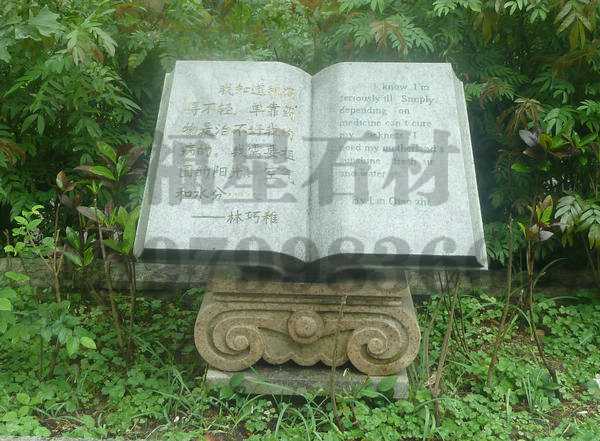 我知道我病
得不轻，单靠药
物是治不好我的
病的，我需要祖
国的阳光、空气
和水分
——林巧稚
I know I'm
seriously ill Simply
depending on
medicine can't cure
my sickness I
need my motherland's
sunshine fresh air
and water etc
By Lin Qiao zhi
福星石材